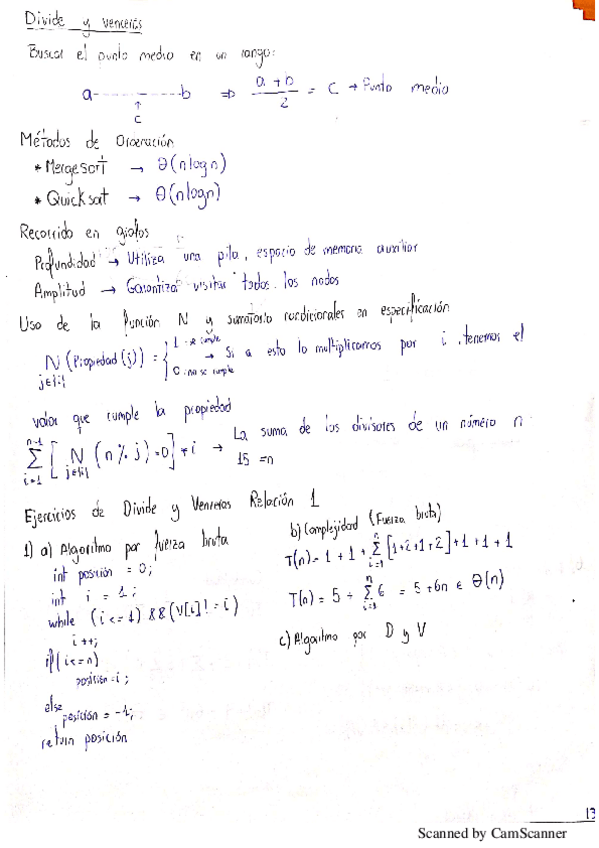 Divide y vencerás
Buscar el punto medio en un rango:
a - - - - - - - b ⇒ (a + b)/2 = c → Punto medio
↑
c
Métodos de Ordenación
* Mergesort → Θ(n log n)
* Quicksort → Θ(n log n)
Recorrido en grafos
Profundidad → Utiliza una pila, espacio de memoria auxiliar
Amplitud → Garantiza visitar todos los nodos
Uso de la función N y sumatorio condicionales en especificación
N (Propiedad(j)) = { 1 : se cumple
j∈{i} → Si a esto lo multiplicamos por i, tenemos el
0 : no se cumple
valor que cumple la propiedad
∑ i=1 n-1 [ N j∈{i} (n % j) = 0 ] * i → La suma de los divisores de un número n
15 = n
Ejercicios de Divide y Venceras Relación 1
1) a) Algoritmo por fuerza bruta
int posicion = 0;
int i = 1;
while (i <= 1) && (V[i] != i)
i++;
if (i <= n)
posicion = i;
else
posicion = -1;
return posición
b) Complejidad (Fuerza bruta)
T(n) = 1 + 1 + ∑ i=1 n [1+2+1+2] + 1 + 1 + 1
T(n) = 5 + ∑ i=1 n 6 = 5 + 6n ∈ Θ(n)
c) Algoritmo por D y V
13
Scanned by CamScanner